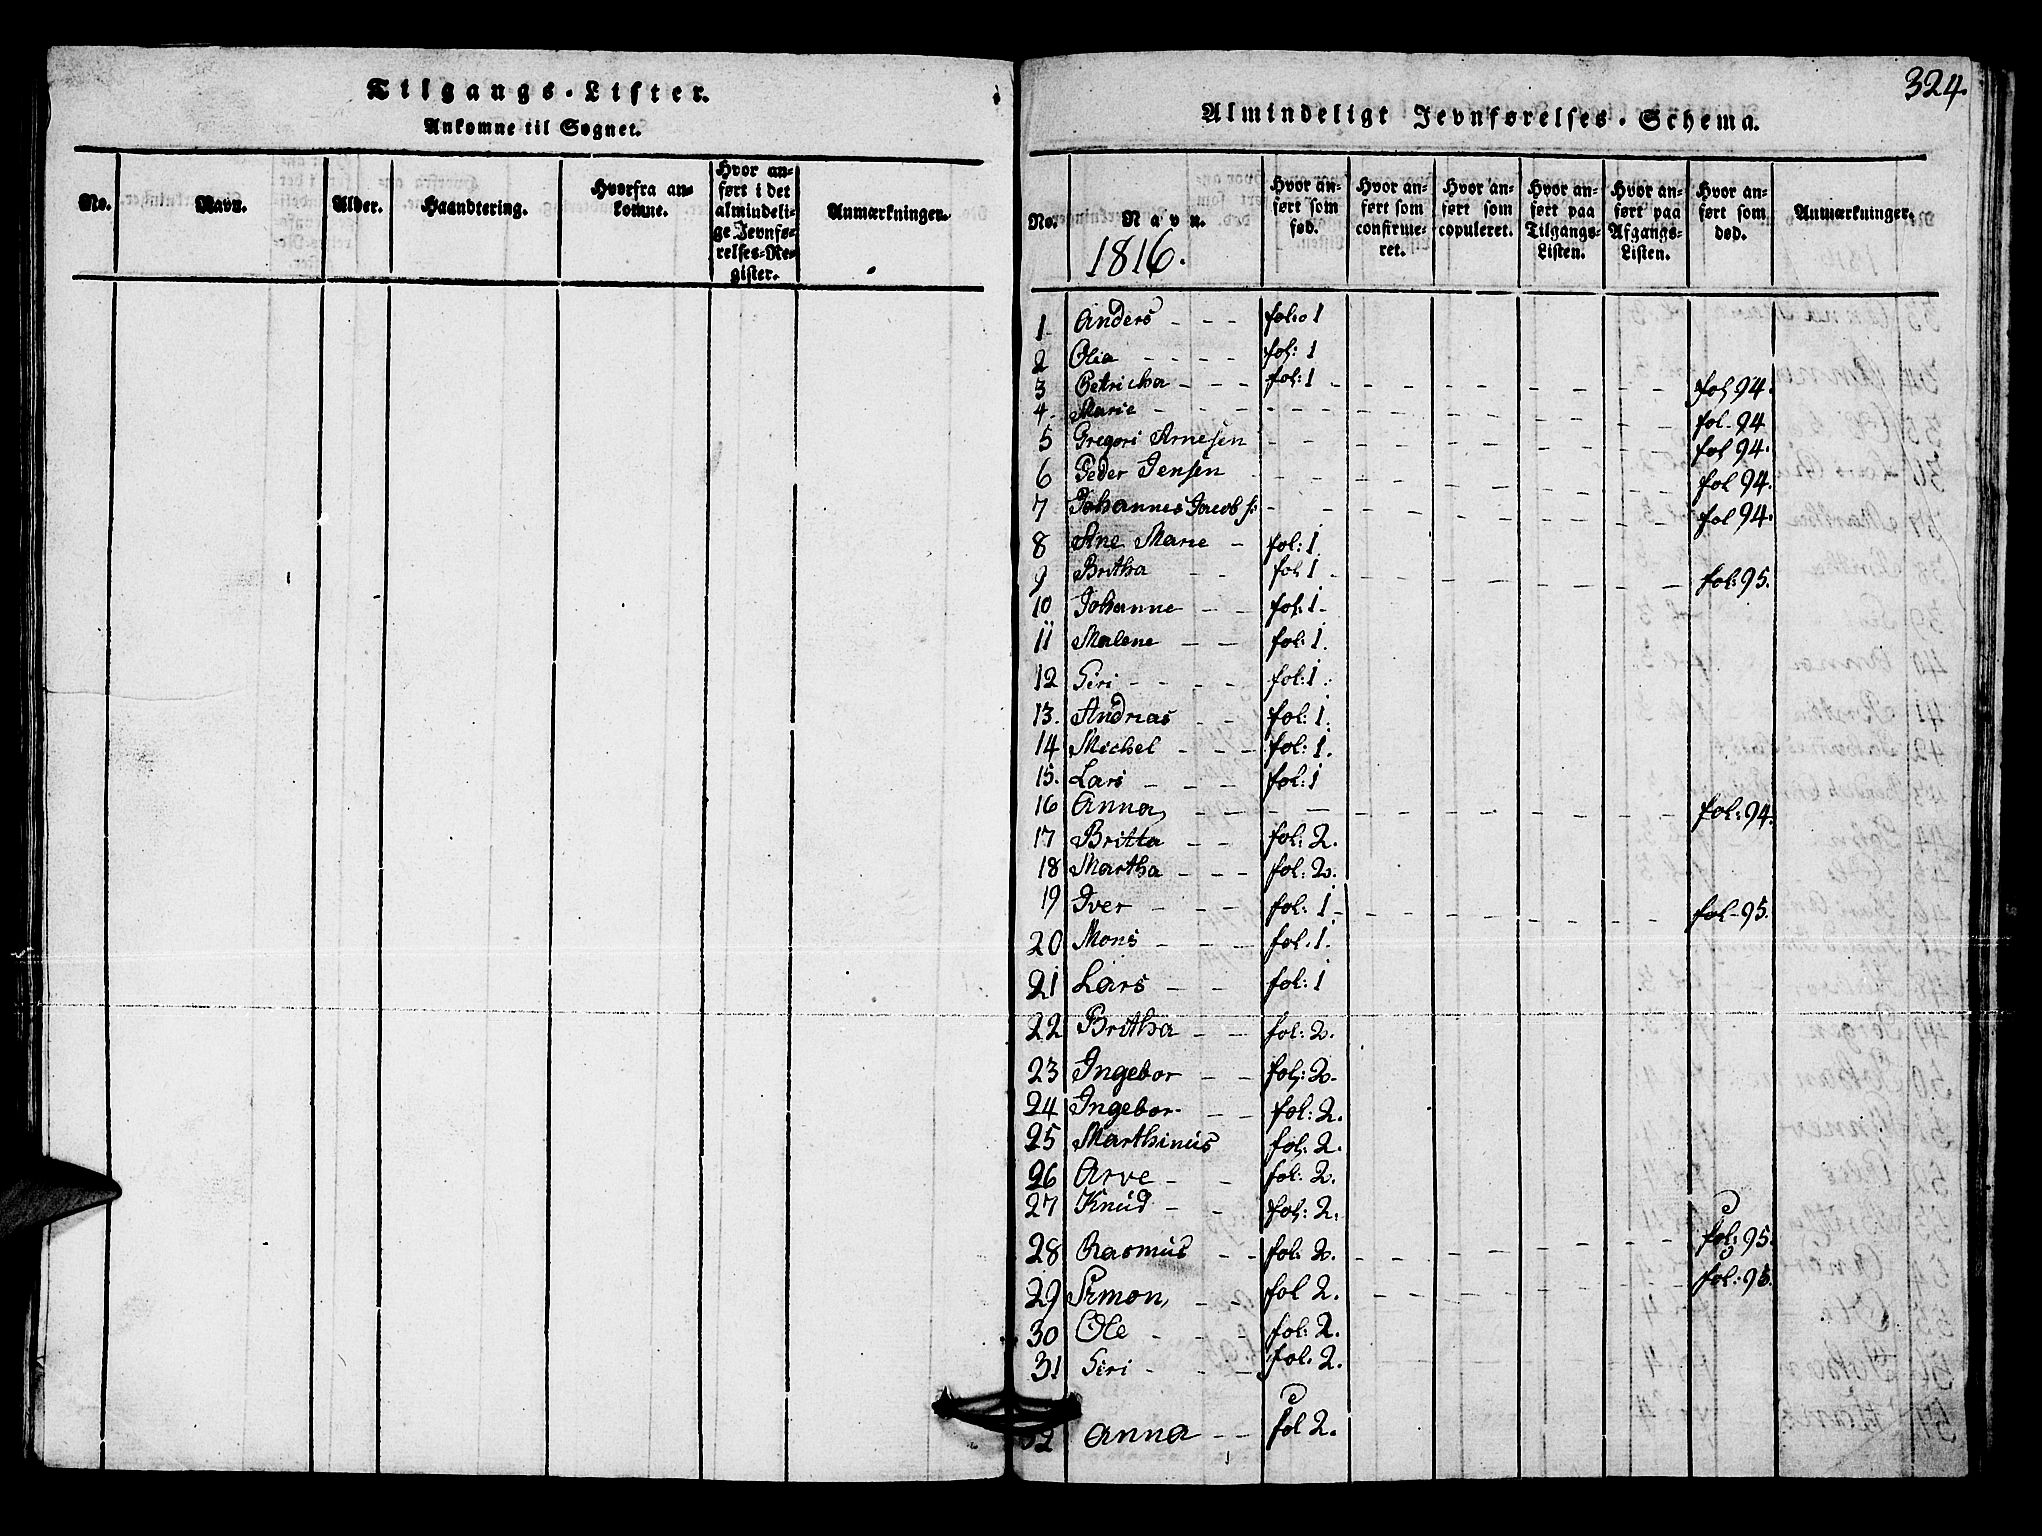 Tilgangs-Lister.
Ankomne til Sognet.
No. Navn. Alder. Haandtering. Hvorfra ankomne. Hvor anført i det almindelige Jevnførelses-Register. Anmærkninger.
324.
Almindeligt Jevnførelses-Schema.
No. Navn. Hvor anført som fød. Hvor anført som confirmeret. Hvor anført som copuleret. Hvor anført paa Tilgangs-Listen. Hvor anført paa Afgangs-Listen. Hvor anført som død. Anmærkninger.
1816.
1 Anders - - - fol: 1
2 Olia - - - - fol: 1
3 Petricha - - - fol: 1 - - - - - fol 94.
4 Marie - - - - - - - fol-94
5 Gregori Arnesen - - - - - fol 94.
6 Peder Jensen - - - - - fol 94.
7 Johannes Jacobs: - - - - - fol 94.
8 Ane Marie - fol: 1.
9 Britha - - fol 1 - - - - - fol: 95.
10 Johanne - - fol: 1.
11 Malene - - fol: 1.
12 Siri - - - - fol: 1.
13. Andrias - - fol: 1.
14 Michel - - - fol: 1.
15. Lars - - - fol: 1
16 Anna, - - - - - - - fol: 94.
17 Britta - - fol: 2.
18 Martha - - - fol: 2.
19 Iver - - - fol: 1 - - - - - fol-95.
20 Mons - - - fol. 1.
21 Lars - - fol: 1
22 Britha - - fol: 2.
23 Ingebor - - fol: 2.
24 Ingebor - - fol: 2.
25 Marthinus fol: 2.
26 Arve - - fol: 2.
27 Knud - - fol: 2.
28 Rasmus - - fol: 2. - - - - - fol: 95.
29 Simon, - - fol 2. - - - - - fol: 95.
30 Ole - - - fol: 2.
31 Siri - - - fol. 2.
32 Anna - - fol 2.